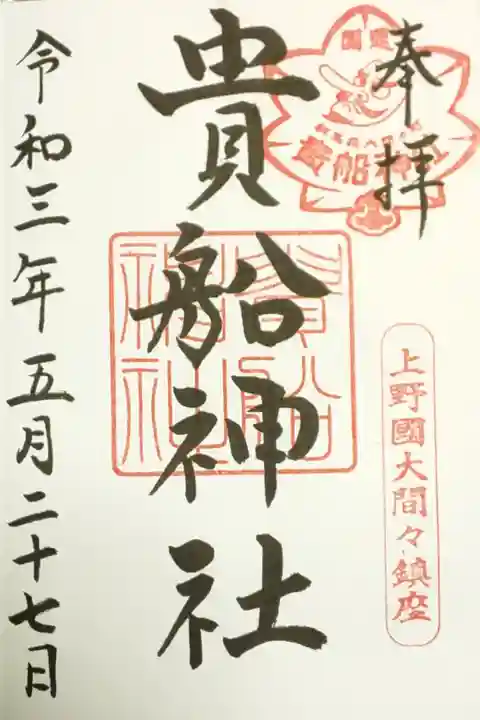 奉拝
貴船神社
貴船神社
貴船神社
上野國大間々鎮座
令和三年五月二十七日